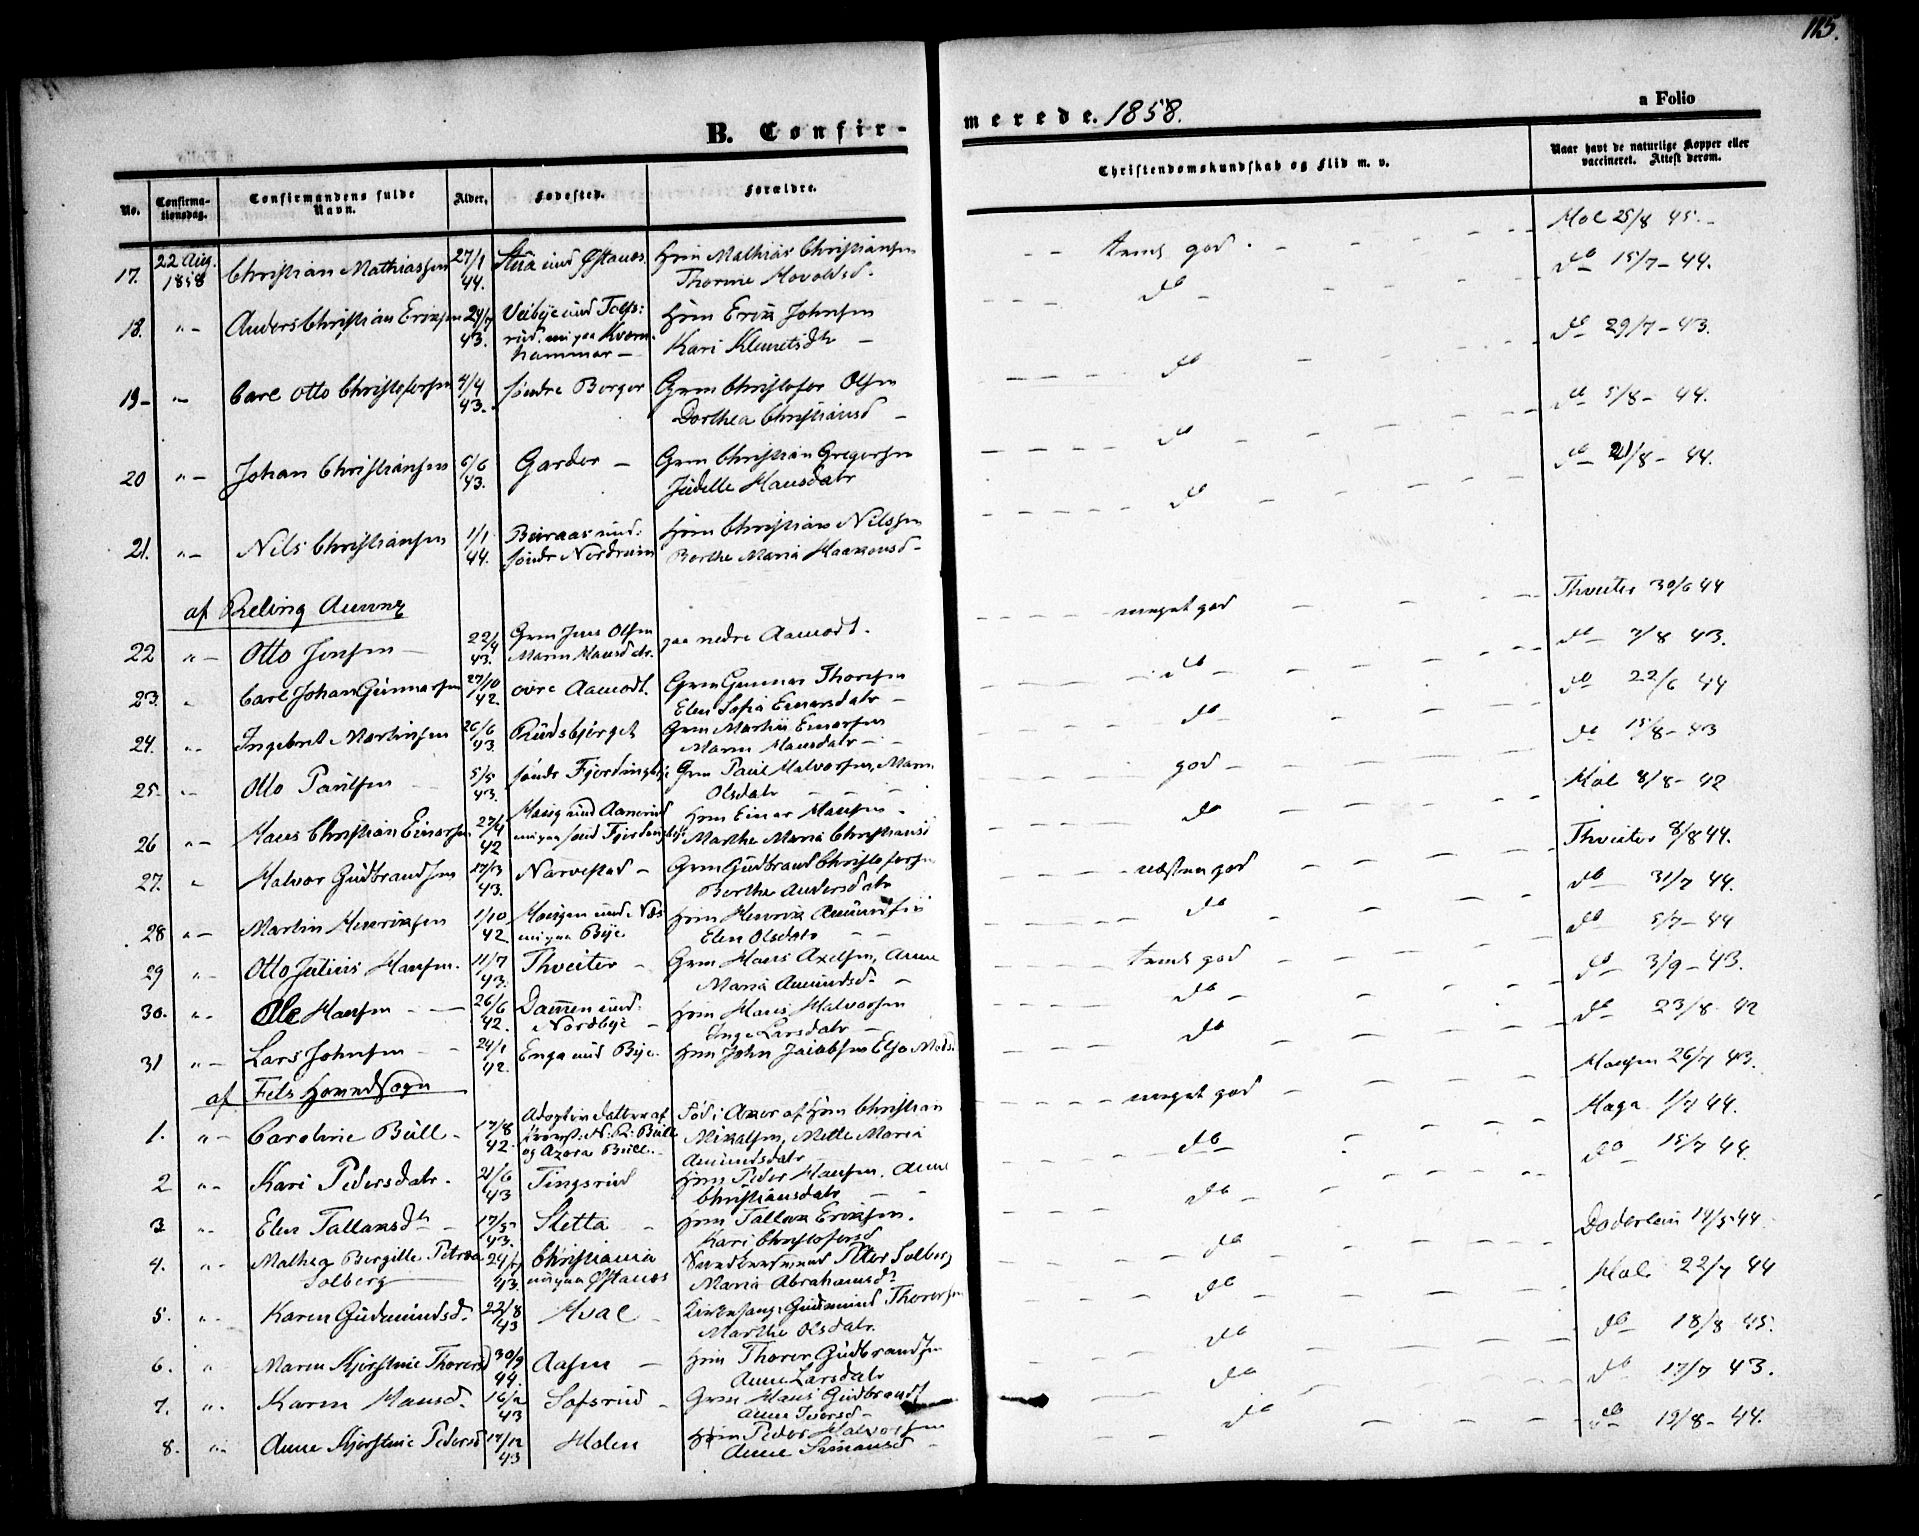 115.
a Folio
B. Confirmerede. 1858.
No. Confirmationsdag. Confirmandens fulde Navn. Alder. Fødested. Forældre. Christendomskundskab og Flid m. v. Naar havt de naturlige Kopper eller vaccineret. Attest derom.
17. 22 Aug. 1858 Christian Mathiassen 27/1 44. Stua und Østanes. Hmn Mathias Christiansen Thorine Hovoldsd. temd god Hol 25/8 45.
18. "- Anders Christian Eriksen 24/7 43. Veibye und Tolfsrud. nu paa Kvernhammer Hmn Erik Johnsen Kari Klemetsdtr do do 15/7-44.
19- "- Carl Otto Christofersen 4/4 43. søndre Berger Grm Christofer Olsen Dorthea Christiansd do do 29/7-43.
20 "- Johan Christiansen 6/6 43. Garder Grm Christian Gregersen Judelle Hansdatr do do 5/8-44.
21. "- Nils Christiansen 1/1 44. Buraas und: søndr Nordrum Hmn Christian Nilssen Berthe Maria Haakonsd do do 21/8-44.
af Reling Annex
22 "- Otto Jensen 22/4 43. Grm Jens Olsen Maren Hansdatr. paa nedre Aamodt. meget god Thveiter 30/6 44
23. " Carl Johan Gunnarsen 27/10 42. ovre Aamodt. Grm Gunnar Thorsen Elen Sofia Einersdatr do do 7/8 43.
24. "- Ingebret Martinsen 26/6 43. Rudsbjerget Grm Martin Einersen Maren Hansdatr do do 22/6 44
25. "- Otto Paulsen 5/5 43. søndr Fjerdingbye Grm Paul Halvorsen, Maren Olsdatr god do 15/8-43
26 "- Hans Christian Einersen 27/4 42 Haug und Aanerud nu paa sønd Fjerdingbye Hmn Einer Hansen Marthe Maria Christiansd do Hol 8/8-42
27. " Halvor Gudbrandsen 17/3 43. Narvestad Grm Gudbrand Christofersen Berthe Andersdatr næsten god Thveiter 8/8 44.
28 "- Martin Henriksen 1/10 42. Haugen und Næs nu paa Bye Hmn Henrik Amundsen Elen Olsdatr do do 31/7 44.
29 "- Otto Julius Hansen. 11/7 43. Thveiter Grm Hans Axelsen, Anne Maria Amundsd. temd god do 5/7-44
30. "- Ole Hansen 26/6 42. Dammen und: Nordbye Hmn Hans Halvorsen Inge Larsdatr do do 3/9-43.
31 "- Lars Johnsen 24/1 42. Enga und Bye. Hmn John Jacobsen Else Mads. do do 23/8 42
af Fets Hovedsogn
1. "- Caroline Bull 17/8 42. Adoptivdatter af Provst. N. R. Bull og Azora Bull. Fød i Aker af Hmn Christian Mikalsen, Mette Maria Amundsdatr meget god Hansen 26/7 43.
2 "- Kari Pedersdatr. 21/6 43 Tingsrud Hmn Peder Hansen. Anne Christiansdatr do Haga 1/7 44.
3. "- Elen Tallaksdtr 17/5 43. Sletta Hmn Tallak Eriksen. Kari Christofersd do do 15/7 44.
4. "- Mathea Bergitte Petrea Solberg 24/7 43. Christiania nu paa Østanes Snedkersvend Peter Solberg Maria Abrahamsdr do Doderlein 14/5-44.
5. "- Karen Gudmundsd. 22/8 43 Hval Kirkesang. Gudmund Thorersen Marthe Olsdatr. do Hol 22/7 44
6. " Maren Kjerstine Thorersd 30/9 44. Aasen Hmn Thorer Gudbrandsen Anne Larsdatr do do 18/8 45.
7. "- Karen Hansd. 16/2 43 Sofsrud Grm Hans Gudbrands. Anne Iversd do do 17/7 43.
8. "- Anne Kjerstine Pedersd 17/12 43 Holen Hmn Peder Halvorsen Anne Simonsd do do 19/8-44.